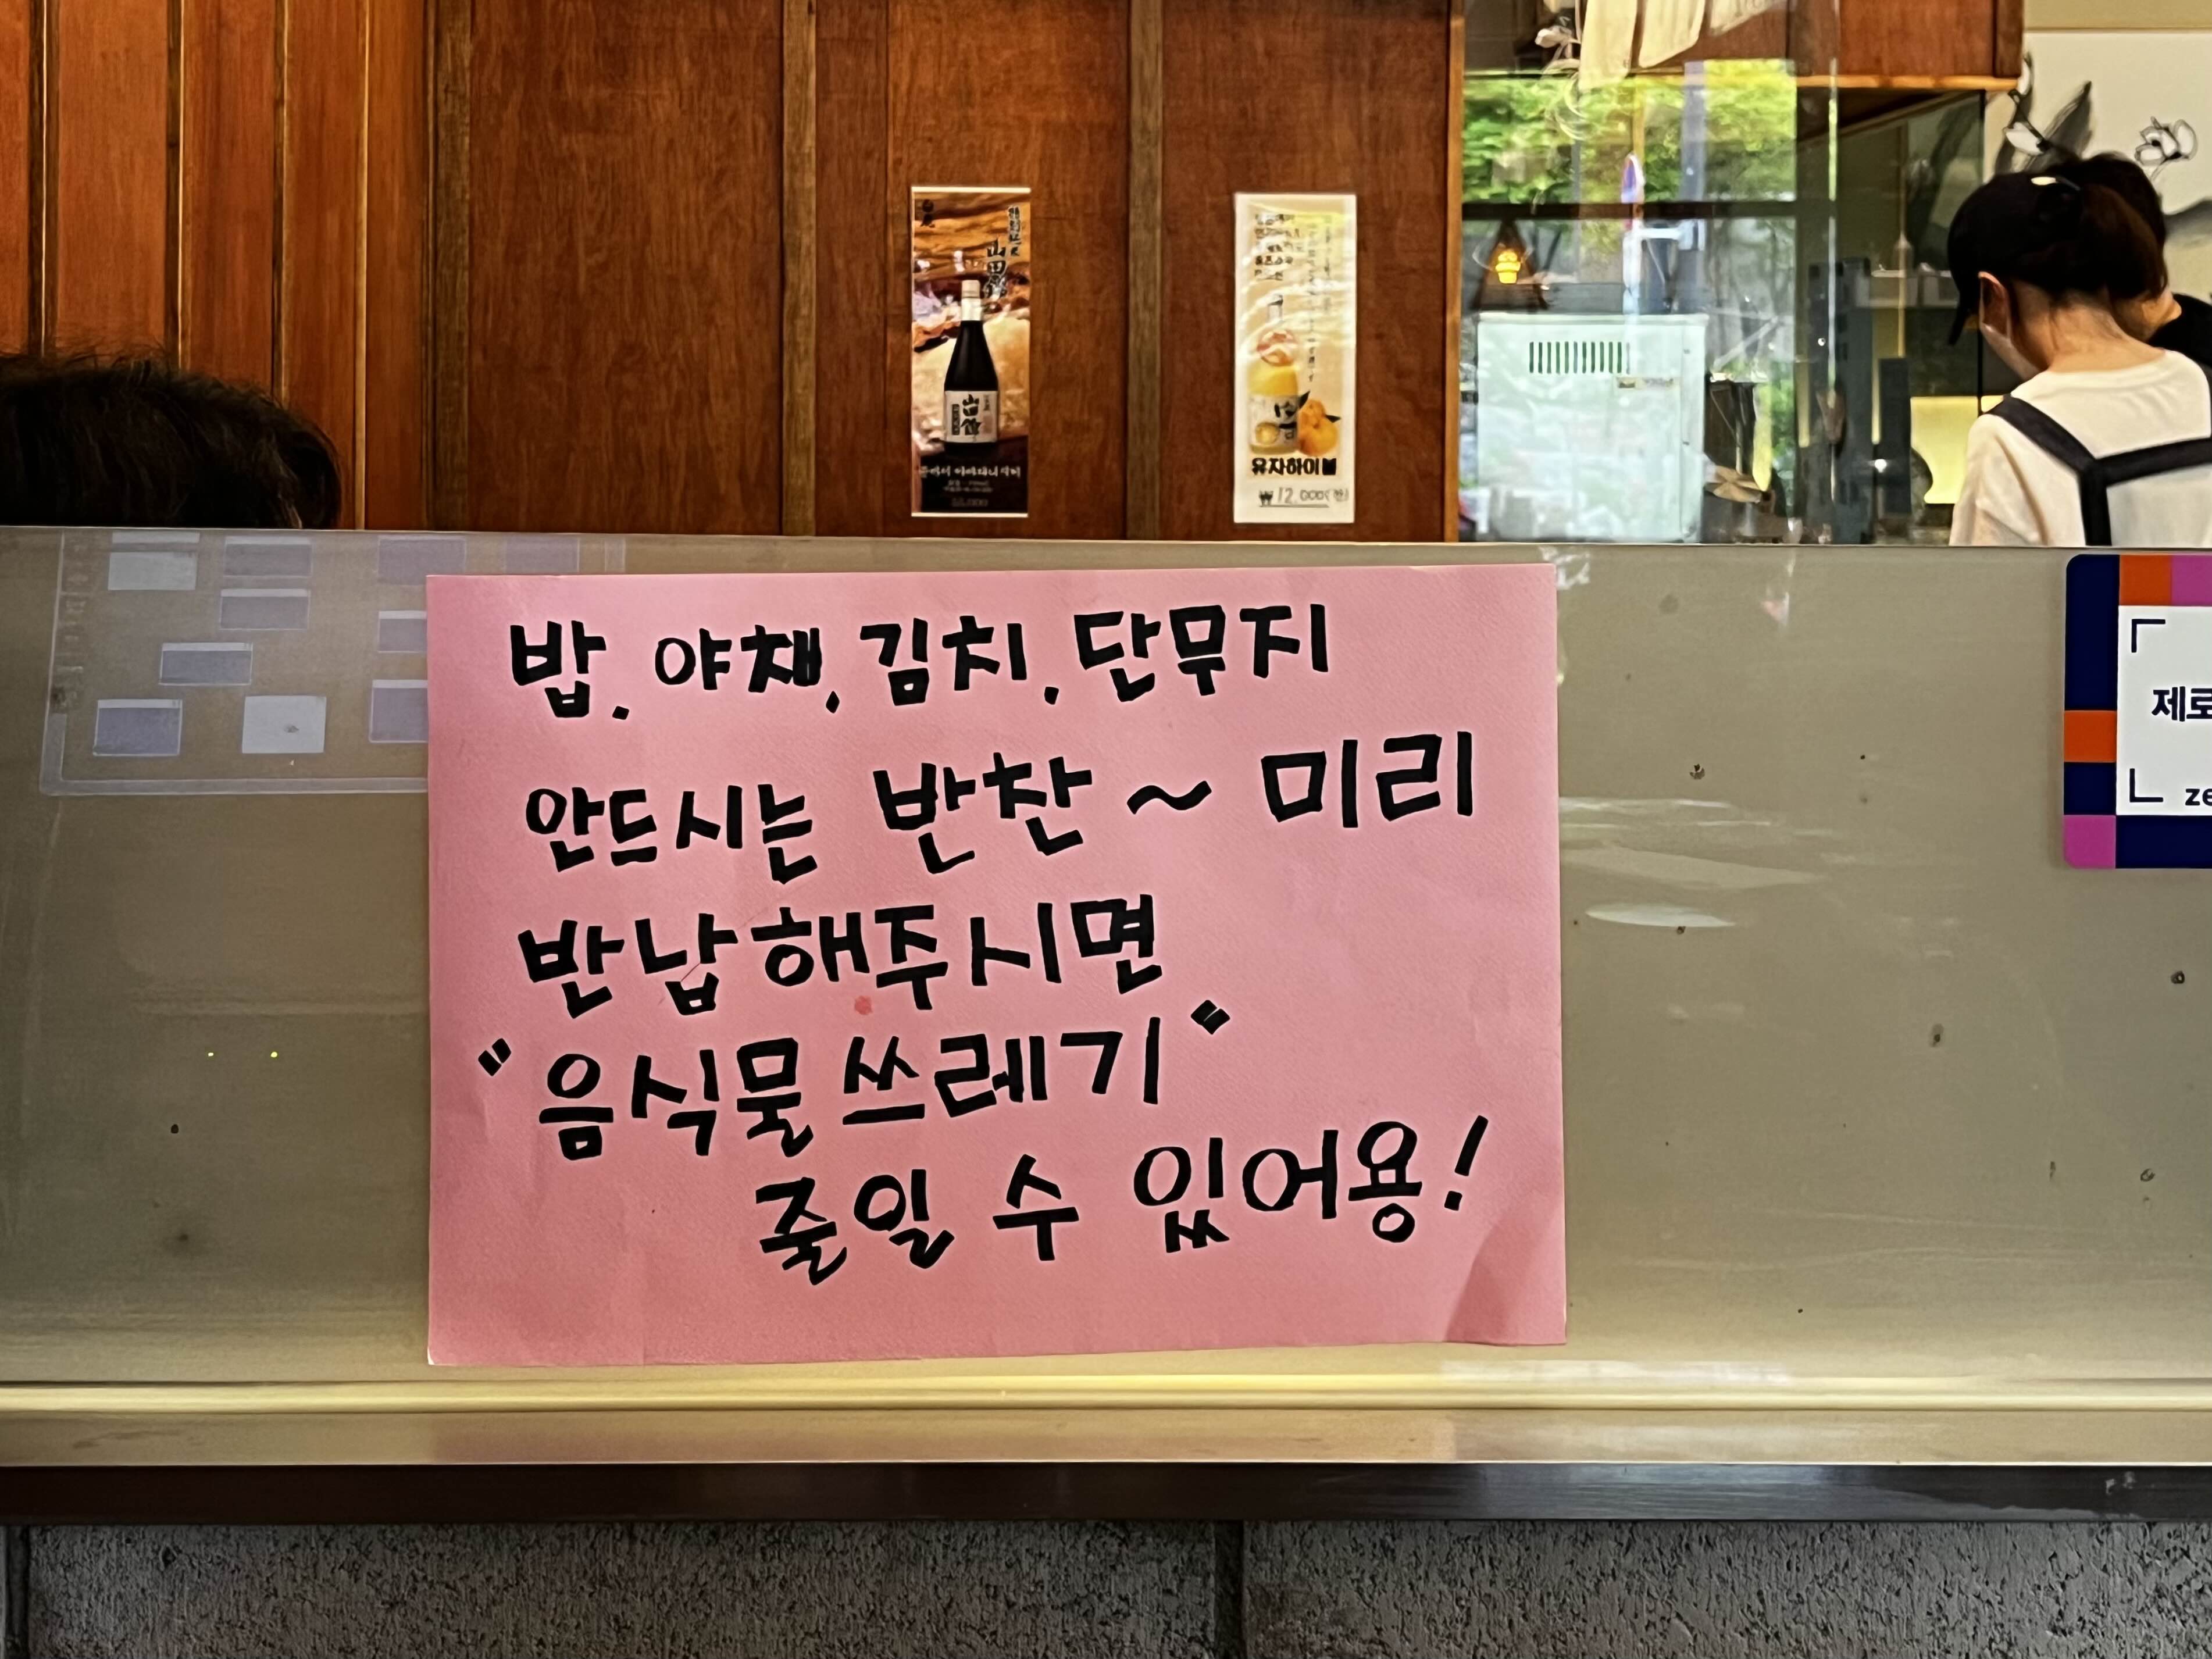 밥, 야채, 김치, 단무지
안드시는 반찬 ~ 미리
반납해주시면
"음식물 쓰레기"
줄일 수 있어용!
유자하이볼
₩12,000(잔)
제로
ze